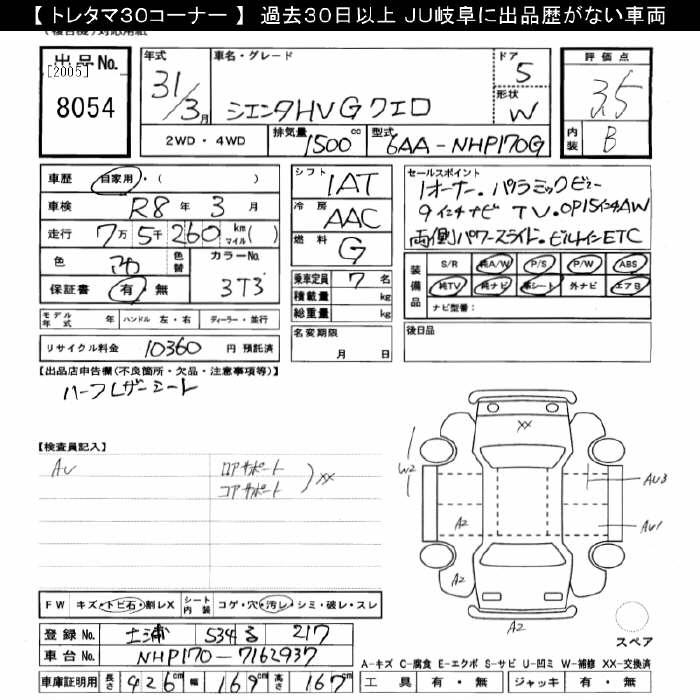 【 トレタマ30コーナー 】 過去30日以上 JU岐阜に出品歴がない車両
出品No.
[2005]
8054
年式 31/3月
車名・グレード シエンタHV G クエロ
ドア 5
形状 W
2WD・4WD
排気量 1500 cc
型式 6AA-NHP170G
評価点 3.5
内装 B
車歴 自家用・( )
車検 R8年 3月
走行 7万 5千 260 km(マイル)
色
色替
カラーNo. 3T3
保証書 有・無
モデル年式 年 ハンドル 左・右 ディーラー・並行
リサイクル料金 10360 円 預託済
シフト 1AT
冷房 AAC
燃料 G
乗車定員 7 名
積載量 kg
総重量 kg
名変期限 月 日
セールスポイント
1オーナー。パノラミックビュー
9インチナビ TV。OP15インチAW
両側パワースライド。ビルトインETC
装備品
S/R 純A/W P/S P/W ABS
純TV 純ナビ 革シート 外ナビ エアB
ナビ型番:
後日品
【出品店申告欄(不良箇所・欠品・注意事項等)】
ハーフレザーシート
【検査員記入】
AU
ロアサポート
コアサポート
XX
XX
W2
A2
AU3
AU1
A2
A2
スペア
FW キズ・トビ石・割レX
シート内装 コゲ・穴・汚レ・シミ・破レ・スレ
登録No. 土浦 534 る 217
車台No. NHP170-7162937
車庫証明用 長さ 426cm 幅 169cm 高さ 167cm
A-キズ C-腐食 E-エクボ S-サビ U-凹ミ W-補修 XX-交換済
工具 有・無 ジャッキ 有・無